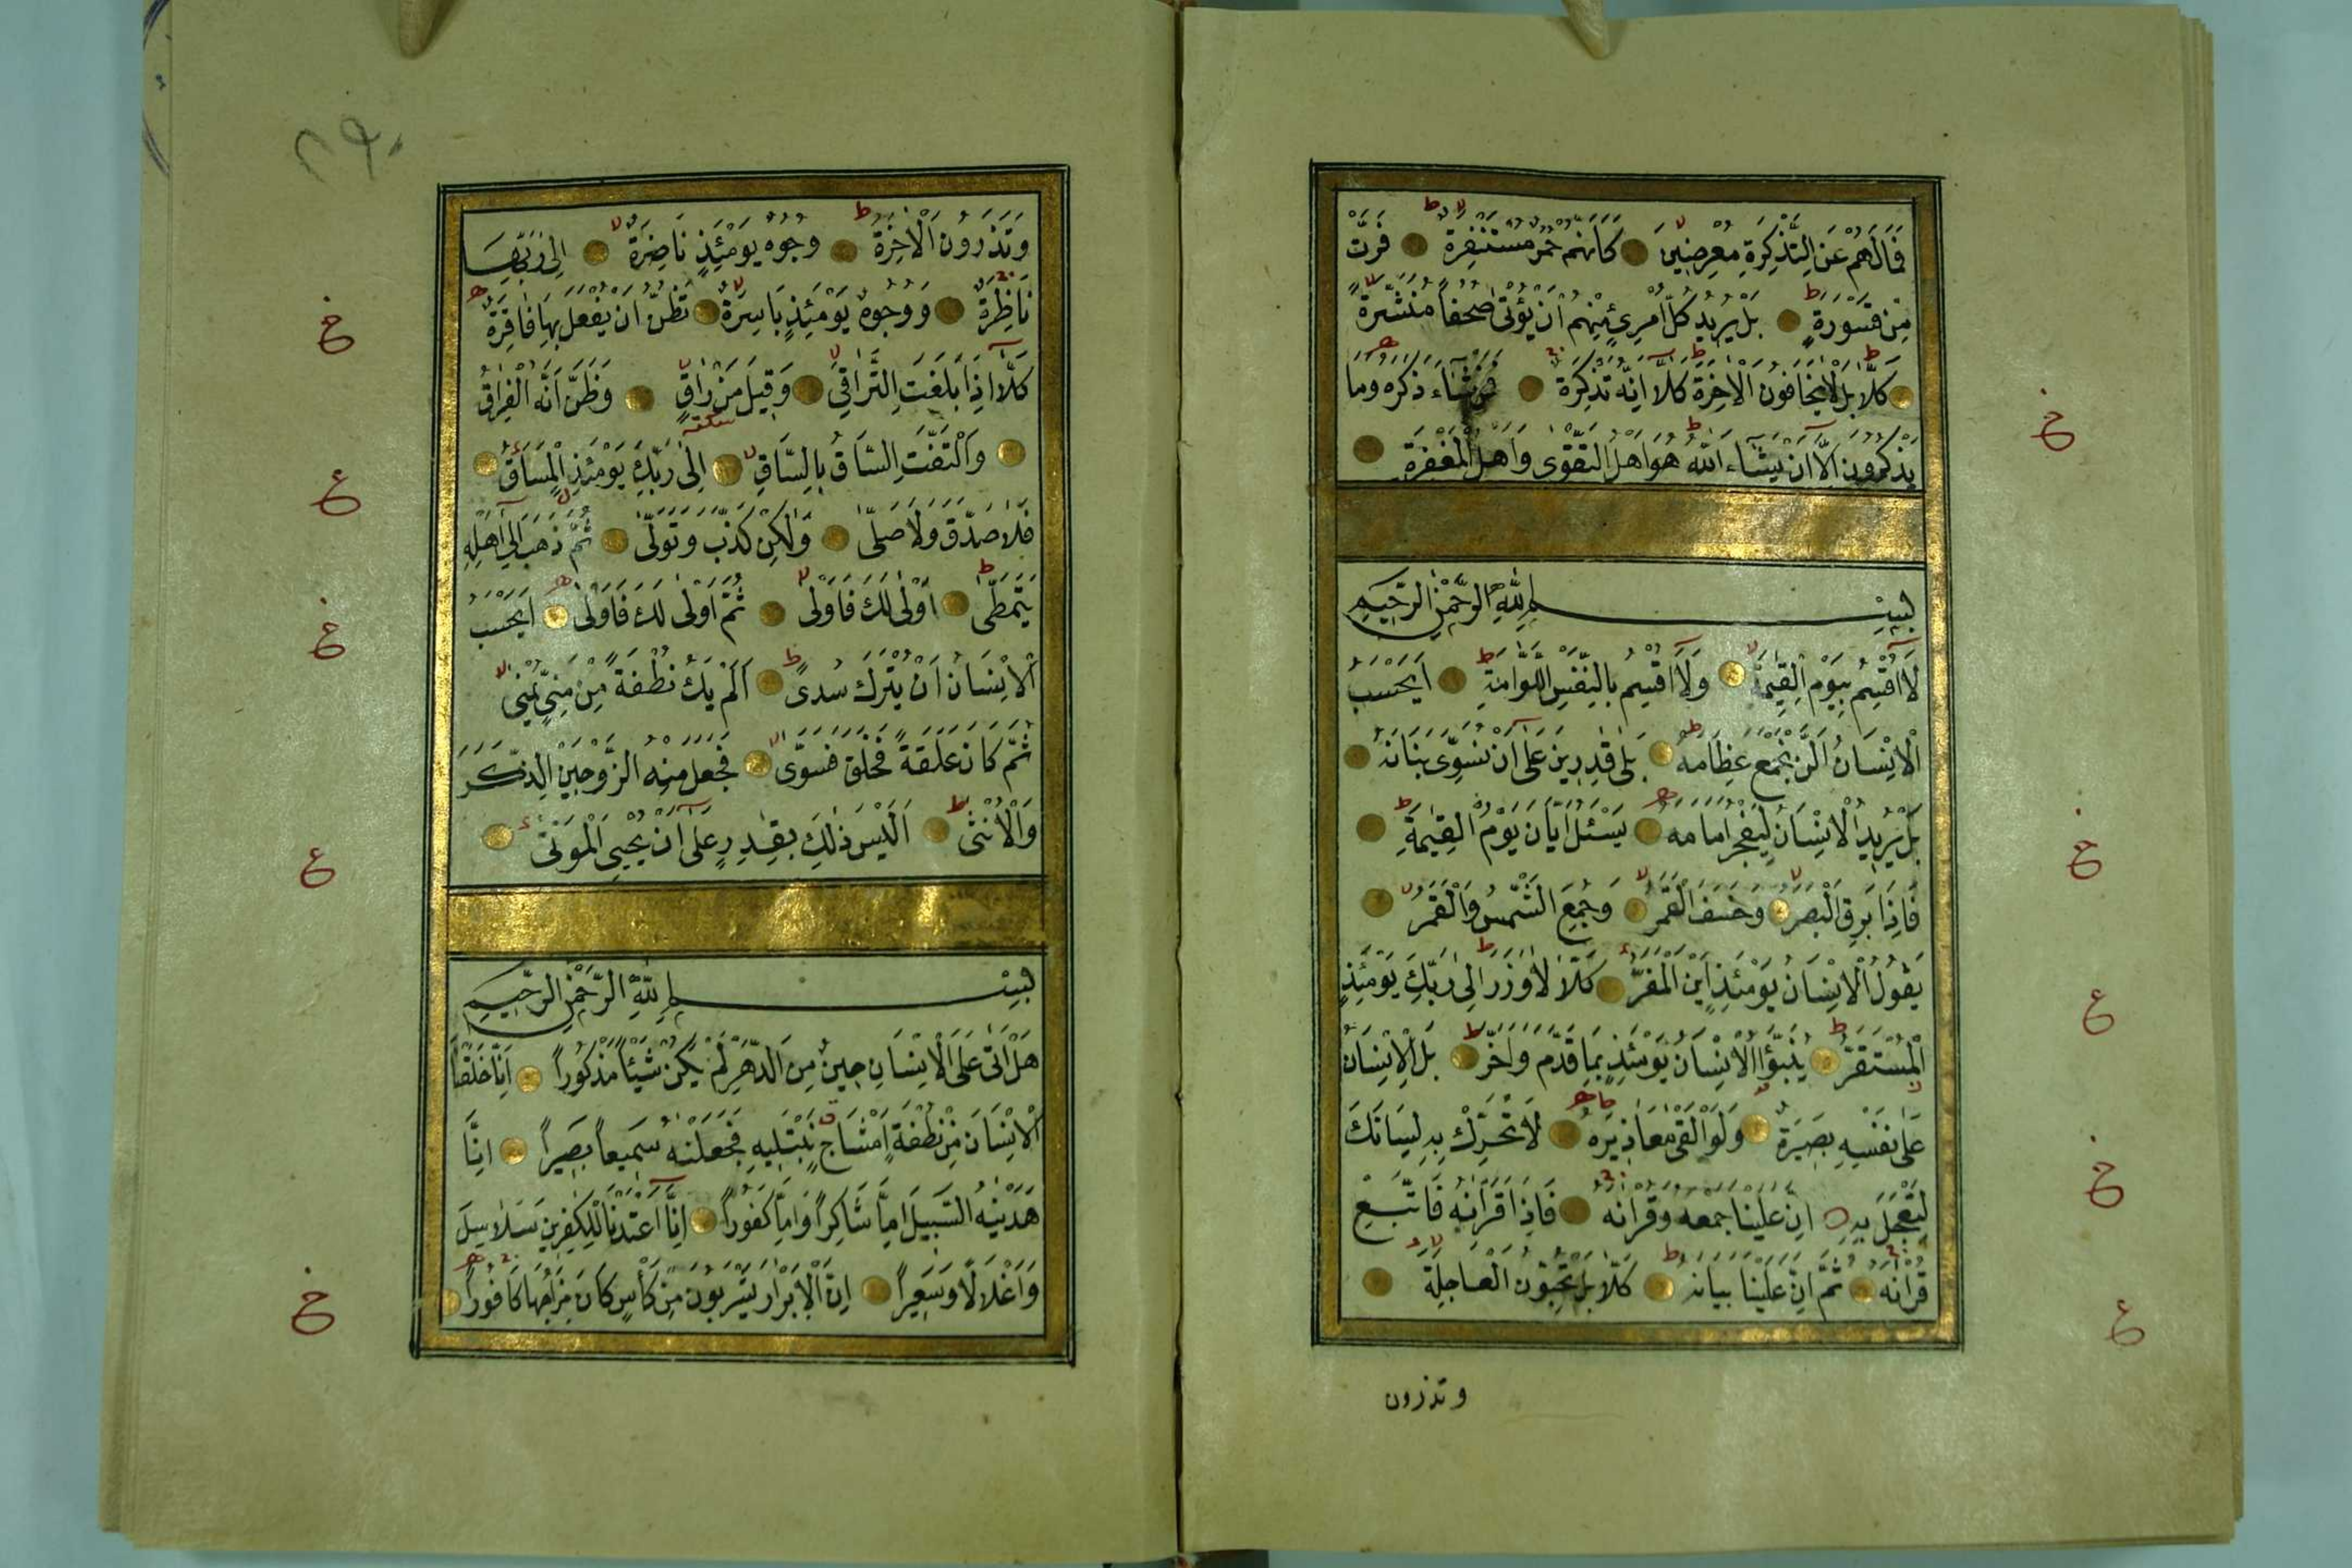 فَمَا لَهُمْ عَنِ التَّذْكِرَةِ مُعْرِضِينَ كَاَنَّهُمْ حُمُرٌ مُسْتَنْفِرَةٌ فَرَّتْ
مِنْ قَسْوَرَةٍ بَلْ يُرِيدُ كُلُّ امْرِئٍ مِنْهُمْ اَنْ يُؤْتٰى صُحُفًا مُنَشَّرَةً
كَلَّا بَلْ لَا يَخَافُونَ الْاٰخِرَةَ كَلَّا اِنَّهُ تَذْكِرَةٌ فَمَنْ شَاءَ ذَكَرَهُ وَمَا
يَذْكُرُونَ اِلَّا اَنْ يَشَاءَ اللّٰهُ هُوَ اَهْلُ التَّقْوٰى وَاَهْلُ الْمَغْفِرَةِ
بِسْمِ اللّٰهِ الرَّحْمٰنِ الرَّحِيمِ
لَا اُقْسِمُ بِيَوْمِ الْقِيٰمَةِ وَلَا اُقْسِمُ بِالنَّفْسِ اللَّوَّامَةِ اَيَحْسَبُ
الْاِنْسَانُ اَلَّنْ نَجْمَعَ عِظَامَهُ بَلٰى قٰدِرِينَ عَلٰى اَنْ نُسَوِّىَ بَنَانَهُ
بَلْ يُرِيدُ الْاِنْسَانُ لِيَفْجُرَ اَمَامَهُ يَسْئَلُ اَيَّانَ يَوْمُ الْقِيٰمَةِ
فَاِذَا بَرِقَ الْبَصَرُ وَخَسَفَ الْقَمَرُ وَجُمِعَ الشَّمْسُ وَالْقَمَرُ
يَقُولُ الْاِنْسَانُ يَوْمَئِذٍ اَيْنَ الْمَفَرُّ كَلَّا لَا وَزَرَ اِلٰى رَبِّكَ يَوْمَئِذٍ
الْمُسْتَقَرُّ يُنَبَّؤُا الْاِنْسَانُ يَوْمَئِذٍ بِمَا قَدَّمَ وَاَخَّرَ بَلِ الْاِنْسَانُ
عَلٰى نَفْسِهِ بَصِيرَةٌ وَلَوْ اَلْقٰى مَعَاذِيرَهُ لَا تُحَرِّكْ بِهِ لِسَانَكَ
لِتَعْجَلَ بِهِ اِنَّ عَلَيْنَا جَمْعَهُ وَقُرْاٰنَهُ فَاِذَا قَرَاْنٰهُ فَاتَّبِعْ
قُرْاٰنَهُ ثُمَّ اِنَّ عَلَيْنَا بَيَانَهُ كَلَّا بَلْ تُحِبُّونَ الْعَاجِلَةَ
وتذرون
خ
خ
ع
خ
ع
٢٩٠
وَتَذَرُونَ الْاٰخِرَةَ وُجُوهٌ يَوْمَئِذٍ نَاضِرَةٌ اِلٰى رَبِّهَا
نَاظِرَةٌ وَوُجُوهٌ يَوْمَئِذٍ بَاسِرَةٌ تَظُنُّ اَنْ يُفْعَلَ بِهَا فَاقِرَةٌ
كَلَّا اِذَا بَلَغَتِ التَّرَاقِىَ وَقِيلَ مَنْ رَاقٍ وَظَنَّ اَنَّهُ الْفِرَاقُ
وَالْتَفَّتِ السَّاقُ بِالسَّاقِ اِلٰى رَبِّكَ يَوْمَئِذٍ الْمَسَاقُ
فَلَا صَدَّقَ وَلَا صَلّٰى وَلٰكِنْ كَذَّبَ وَتَوَلّٰى ثُمَّ ذَهَبَ اِلٰى اَهْلِهِ
يَتَمَطّٰى اَوْلٰى لَكَ فَاَوْلٰى ثُمَّ اَوْلٰى لَكَ فَاَوْلٰى اَيَحْسَبُ
الْاِنْسَانُ اَنْ يُتْرَكَ سُدًى اَلَمْ يَكُ نُطْفَةً مِنْ مَنِىٍّ يُمْنٰى
ثُمَّ كَانَ عَلَقَةً فَخَلَقَ فَسَوّٰى فَجَعَلَ مِنْهُ الزَّوْجَيْنِ الذَّكَرَ
وَالْاُنْثٰى اَلَيْسَ ذٰلِكَ بِقٰدِرٍ عَلٰى اَنْ يُحْيِىَ الْمَوْتٰى
بِسْمِ اللّٰهِ الرَّحْمٰنِ الرَّحِيمِ
هَلْ اَتٰى عَلَى الْاِنْسَانِ حِينٌ مِنَ الدَّهْرِ لَمْ يَكُنْ شَيْئًا مَذْكُورًا اِنَّا خَلَقْنَا
الْاِنْسَانَ مِنْ نُطْفَةٍ اَمْشَاجٍ نَبْتَلِيهِ فَجَعَلْنٰهُ سَمِيعًا بَصِيرًا اِنَّا
هَدَيْنٰهُ السَّبِيلَ اِمَّا شَاكِرًا وَاِمَّا كَفُورًا اِنَّا اَعْتَدْنَا لِلْكٰفِرِينَ سَلَاسِلَ
وَاَغْلَالًا وَسَعِيرًا اِنَّ الْاَبْرَارَ يَشْرَبُونَ مِنْ كَأْسٍ كَانَ مِزَاجُهَا كَافُورًا
خ
ع
خ
ع
خ